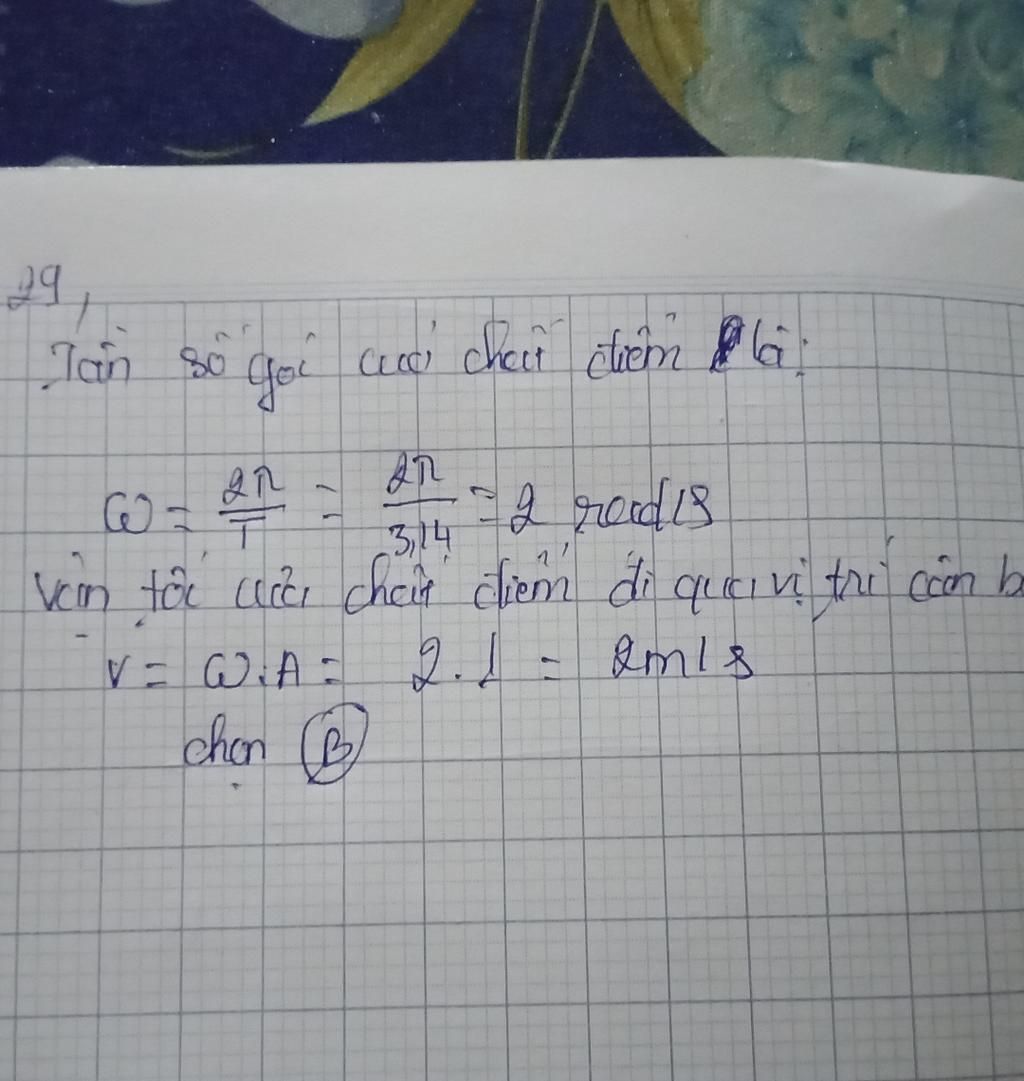 29,
Tần số góc của chất điểm là:
ω = 2π/T = 2π/3,14 = 2 rad/s
vận tốc của chất điểm đi qua vị trí cân b
v = ω.A = 2.1 = 2m/s
chọn B